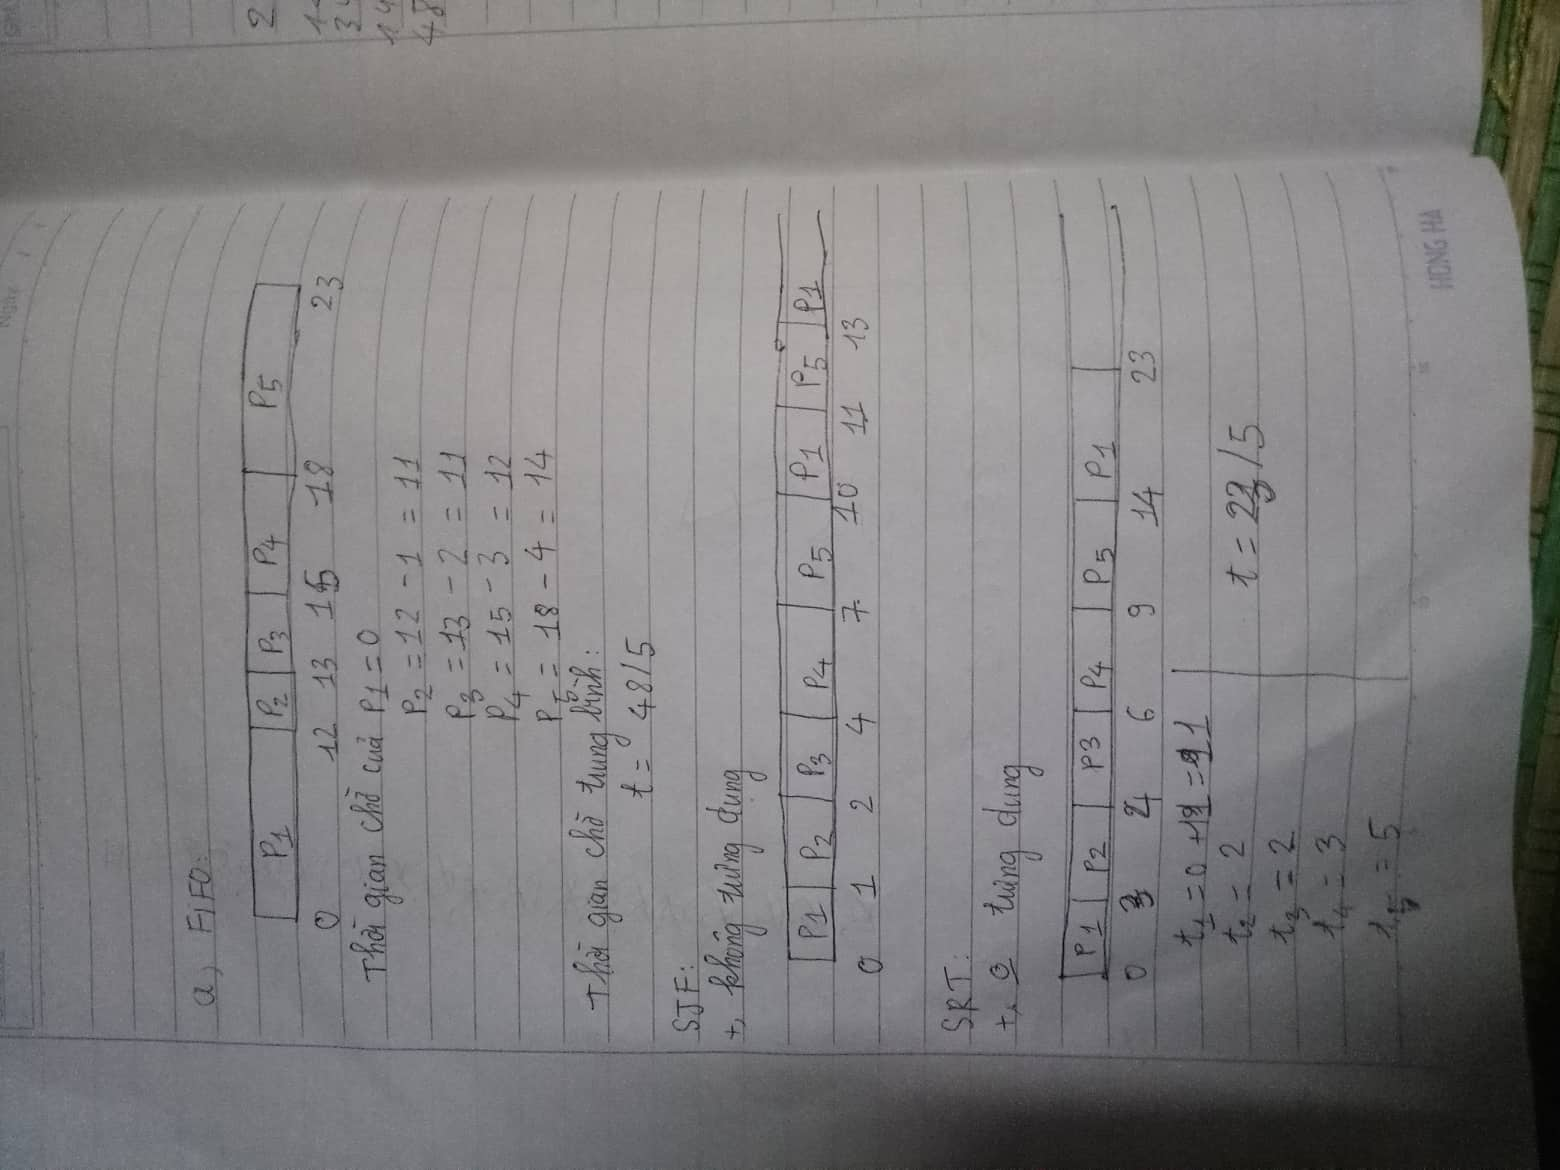 a, FIFO:
P1 P2 P3 P4 P5
0 12 13 15 18 23
Thời gian chờ của P1 = 0
P2 = 12 - 1 = 11
P3 = 13 - 2 = 11
P4 = 15 - 3 = 12
P5 = 18 - 4 = 14
Thời gian chờ trung bình:
t = 48/5
SJF:
+, không trưng dụng
P1 P2 P3 P4 P5 P1 P5 P1
0 1 2 4 7 10 11 13
SRT:
+, trưng dụng
P1 P2 P3 P4 P5 P1
0 3 4 6 9 14 23
t1 = 0 + 11 = 11
t2 = 2
t = 23/5
t3 = 2
t4 = 3
t5 = 5
HONG HA